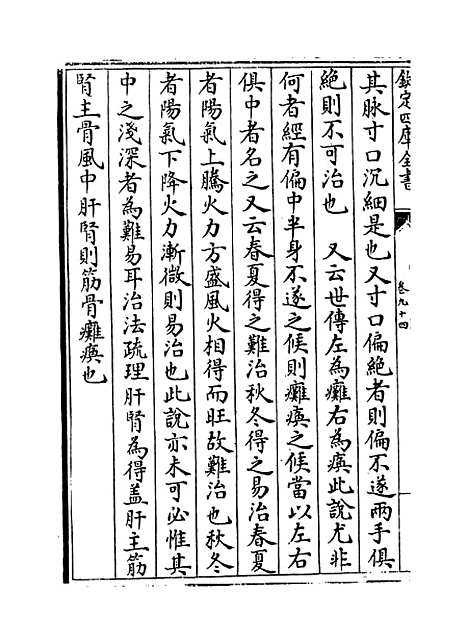 欽定四庫全書
卷九十四
其脉寸口沉細是也又寸口偏絶者則偏不遂兩手俱
絶則不可治也　又云世傳左為癱右為瘓此說尤非
何者經有偏中半身不遂之候則癱瘓之候當以左右
俱中者名之又云春夏得之難治秋冬得之易治春夏
者陽氣上騰火力方盛風火相得而旺故難治也秋冬
者陽氣下降火力漸微則易治也此說亦未可必惟其
中之淺深者為難易耳治法疏理肝腎為得盖肝主筋
腎主骨風中肝腎則筋骨癱瘓也